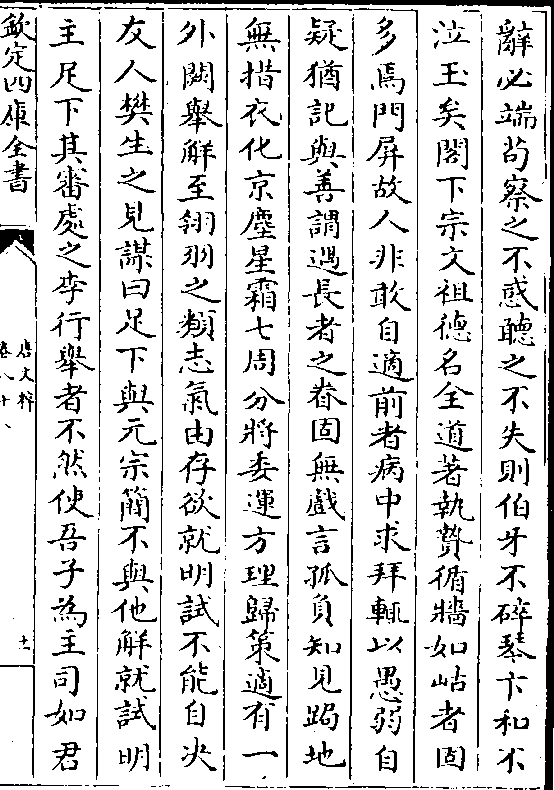 辭必端茍察之不惑聽之不失則伯牙不碎琴卞和不
泣玉矣閣下宗文祖德名全道著執贄循牆如岵者固
多焉門屏故人非敢自適前者病中求拜輒以愚弱自
疑猶記與善謂遇長者之眷固無戲言孤負知見跼地
無措衣化京塵星霜七周分將委運方理歸策適有一
外闕舉解至翎羽之類志氣由存欲就明試不能自決
友人樊生之見謀曰足下與元宗簡不與他解就試明
主足下其審處之李行舉者不然使吾子為主司如君
欽定四庫全書
唐文粹
卷八十八
十一